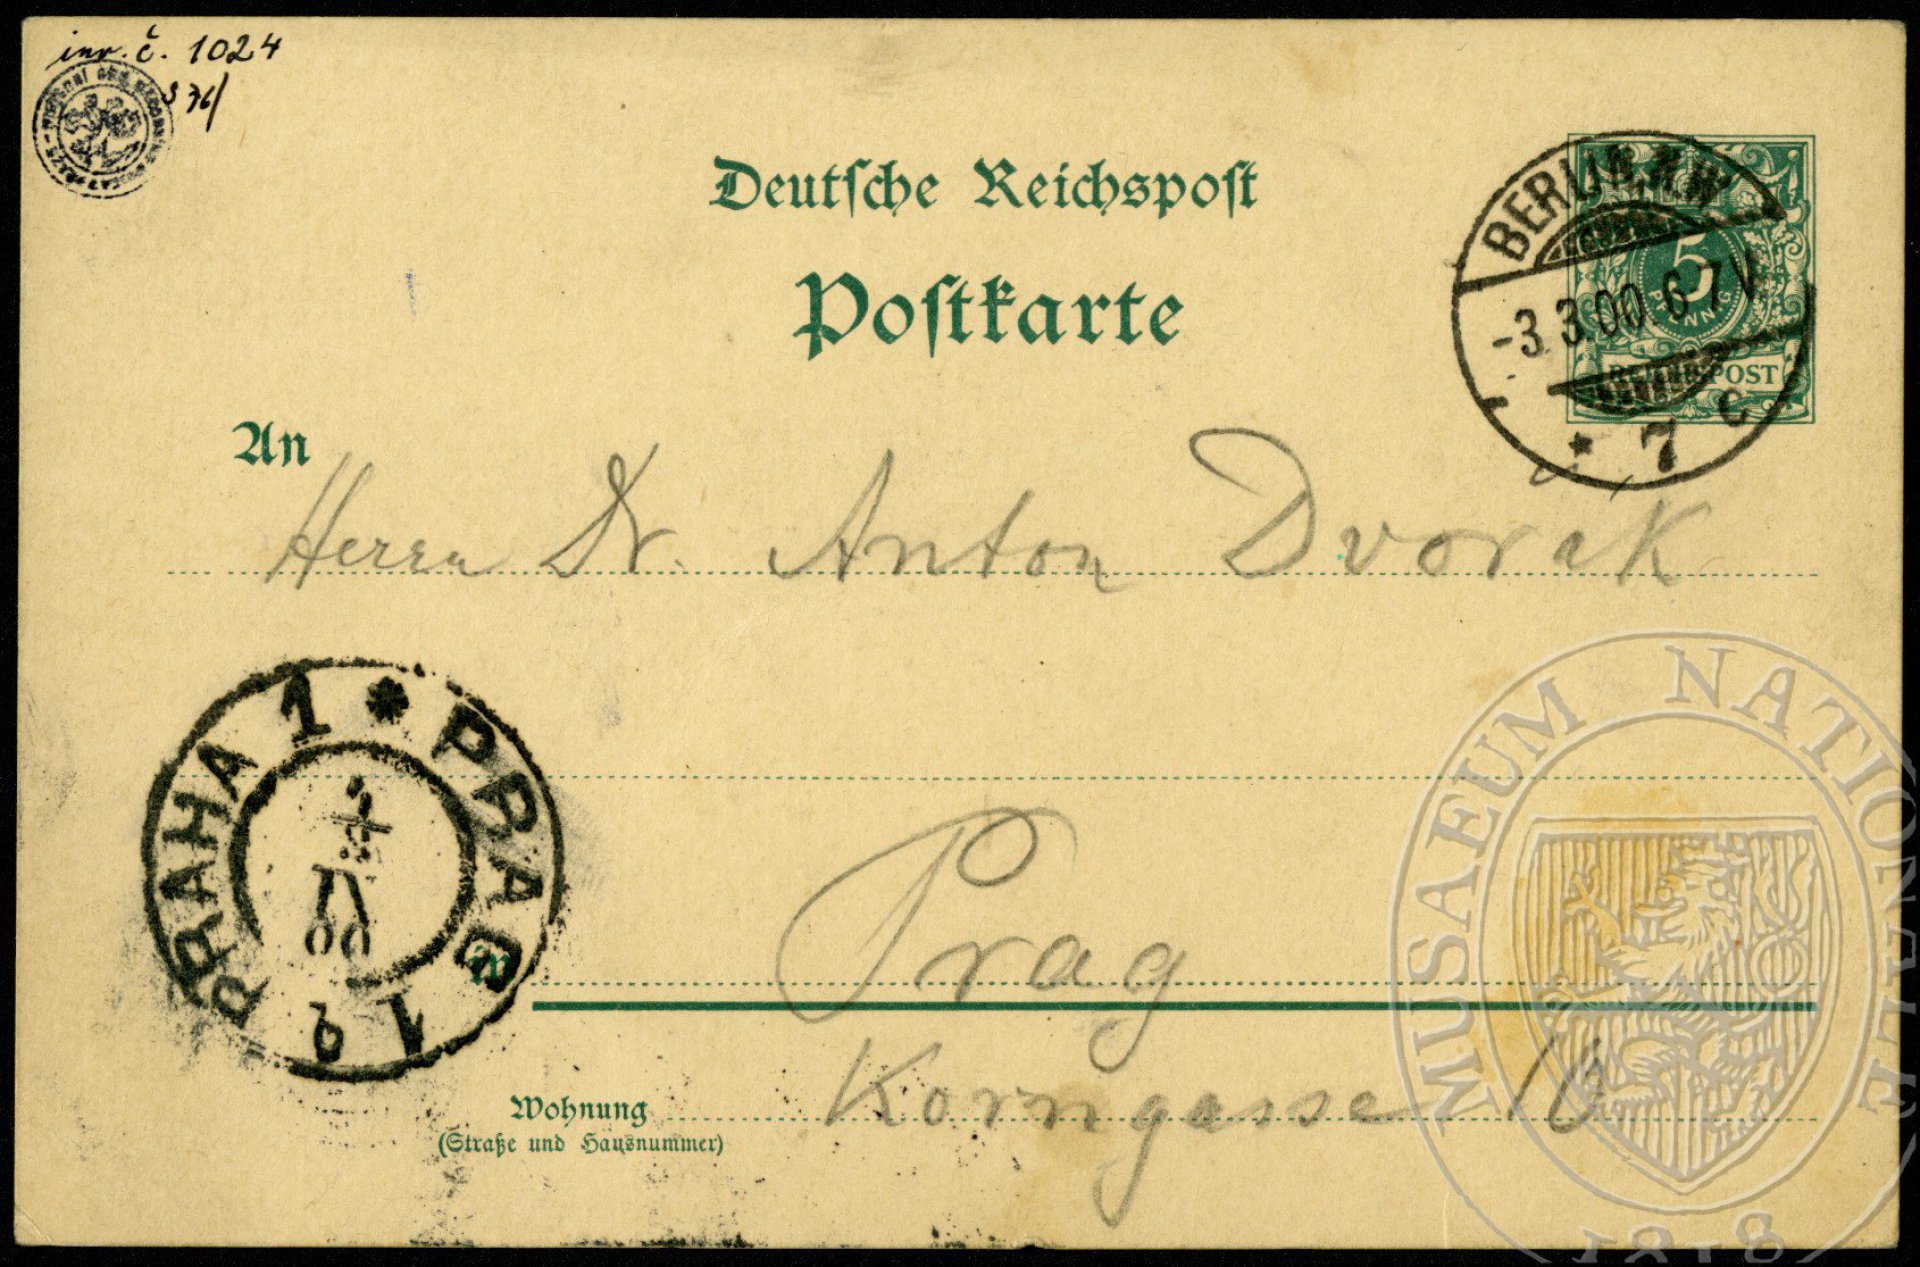 inv. č. 1024
S 76/
Deutsche Reichspost
Postkarte
BERLIN, N.W.
5
PFENNIG
-3.3.00. 6-7V.
REICHSPOST
* 7 c
An
Herrn Dr. Anton Dvorak
PRAHA 1 * PRAG 1
00
b
in
Prag
Wohnung
(Straße und Hausnummer)
Korngasse
MUSAEUM NATIONALE
1818